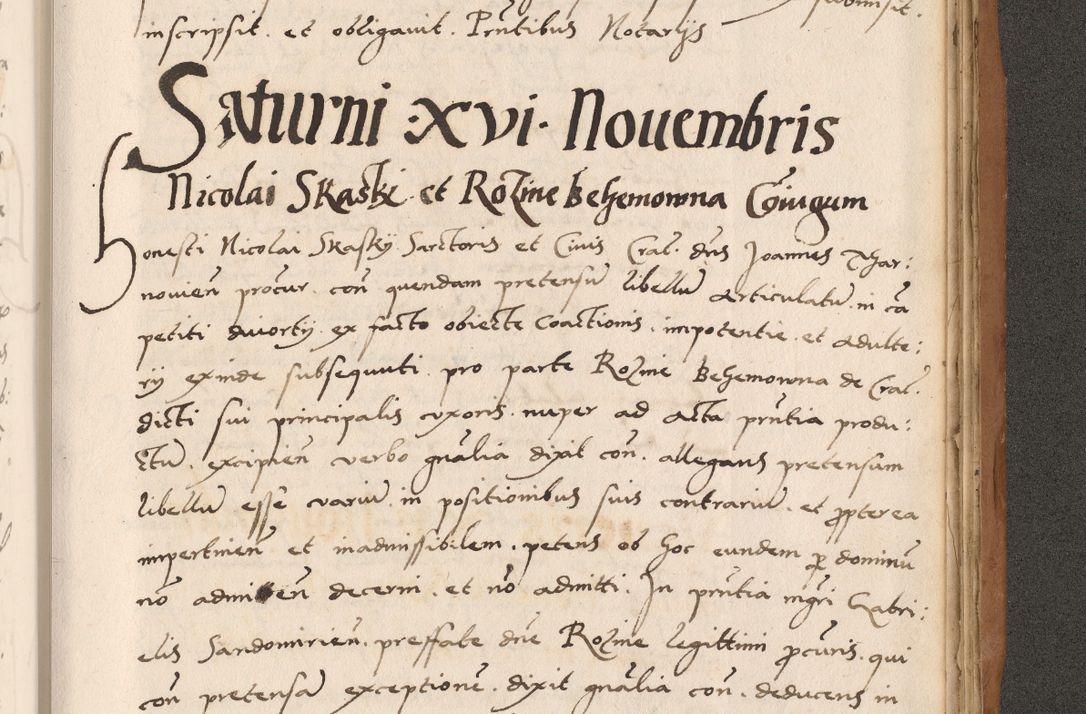 inscripsit. et obligauit. Pr̃ntibus Notarijs
Saturni .XVI. Nouembris
Nicolai Skaski et Rozine Behemowna Cõiugum
Honesti Nicolai Skasky Sartoris et Ciuis Crac. dñs Joannes Thar:
nouien̄ procur. con̄ quendam pretensū libellū articulatū. in cā
petiti diuortij. ex facto obiecte coactionis. impotentie. et adulte:
rij exinde subsequuti. pro parte Rozine Behemowna de Crac.
dicti sui principalis vxoris. nuper ad acta pr̃ntia produ:
ctū. excipien̄ verbo gnãlia dixit con̄. allegans pretensum
libellū esse variū. in positionibus suis contrariū. et ꝓpterea
impertinen̄ et inadmissibilem. petens ob hoc eundem ꝑ dominū
nō admitten̄ decerni. et nō admitti. In pr̃ntia mgr̃i Gabri:
elis Sandomirien̄. preffate dn̄e Rozine legittimi ꝓcuris. qui
con̄ pretensā exceptionē. dixit gnãlia con̄. deducens in